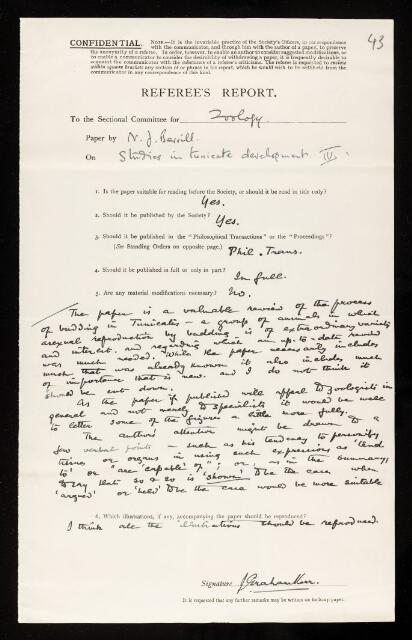 43
CONFIDENTIAL. NOTE.—It is the invariable practice of the Society's Officers, in correspondence
with the communicator, and through him with the author of a paper, to preserve
the anonymity of a referee. In order, however, to enable an author to consider suggested modifications, or
to enable a communicator to consider the desirability of withdrawing a paper, it is frequently desirable to
acquaint the communicator with the substance of a referee's criticisms. The referee is requested to enclose
within square brackets any section of or phrase in his report, which he would wish to be withheld from the
communicator in any correspondence of this kind.
REFEREE'S REPORT.
To the Sectional Committee for Zoology.
Paper by N. J. Berrill.
On Studies in tunicate development. IV.
1. Is the paper suitable for reading before the Society, or should it be read in title only?
Yes.
2. Should it be published by the Society? Yes.
3. Should it be published in the "Philosophical Transactions" or the "Proceedings"?
(See Standing Orders on opposite page.) Phil. Trans.
4. Should it be published in full or only in part?
In full.
5. Are any material modifications necessary? No.
The paper is a valuable review of the process
of budding in Tunicates — a group of animals in which
asexual reproduction by budding is of extraordinary variety
and interest, and regarding which an up-to-date review
was much needed. While the paper necessarily includes
much that was already known it also includes much
of importance that is new and I do not think it
should be cut down.
As the paper if published will appeal to zoologists in
general and not merely to specialists it would be well
to letter some of the figures a little more fully.
The author's attention might be drawn to a
few verbal points — such as his tendency to personify
theories or organs in using such expressions as 'tend
to' or "are 'capable' of"; or, as in the summary,
to say that so & so is 'shown' to be the case, when
'argued' or 'held' to be the case would be more suitable
6. Which illustrations, if any, accompanying the paper should be reproduced?
I think all the illustrations should be reproduced.
Signature J Graham Kerr.
It is requested that any further remarks may be written on foolscap paper.